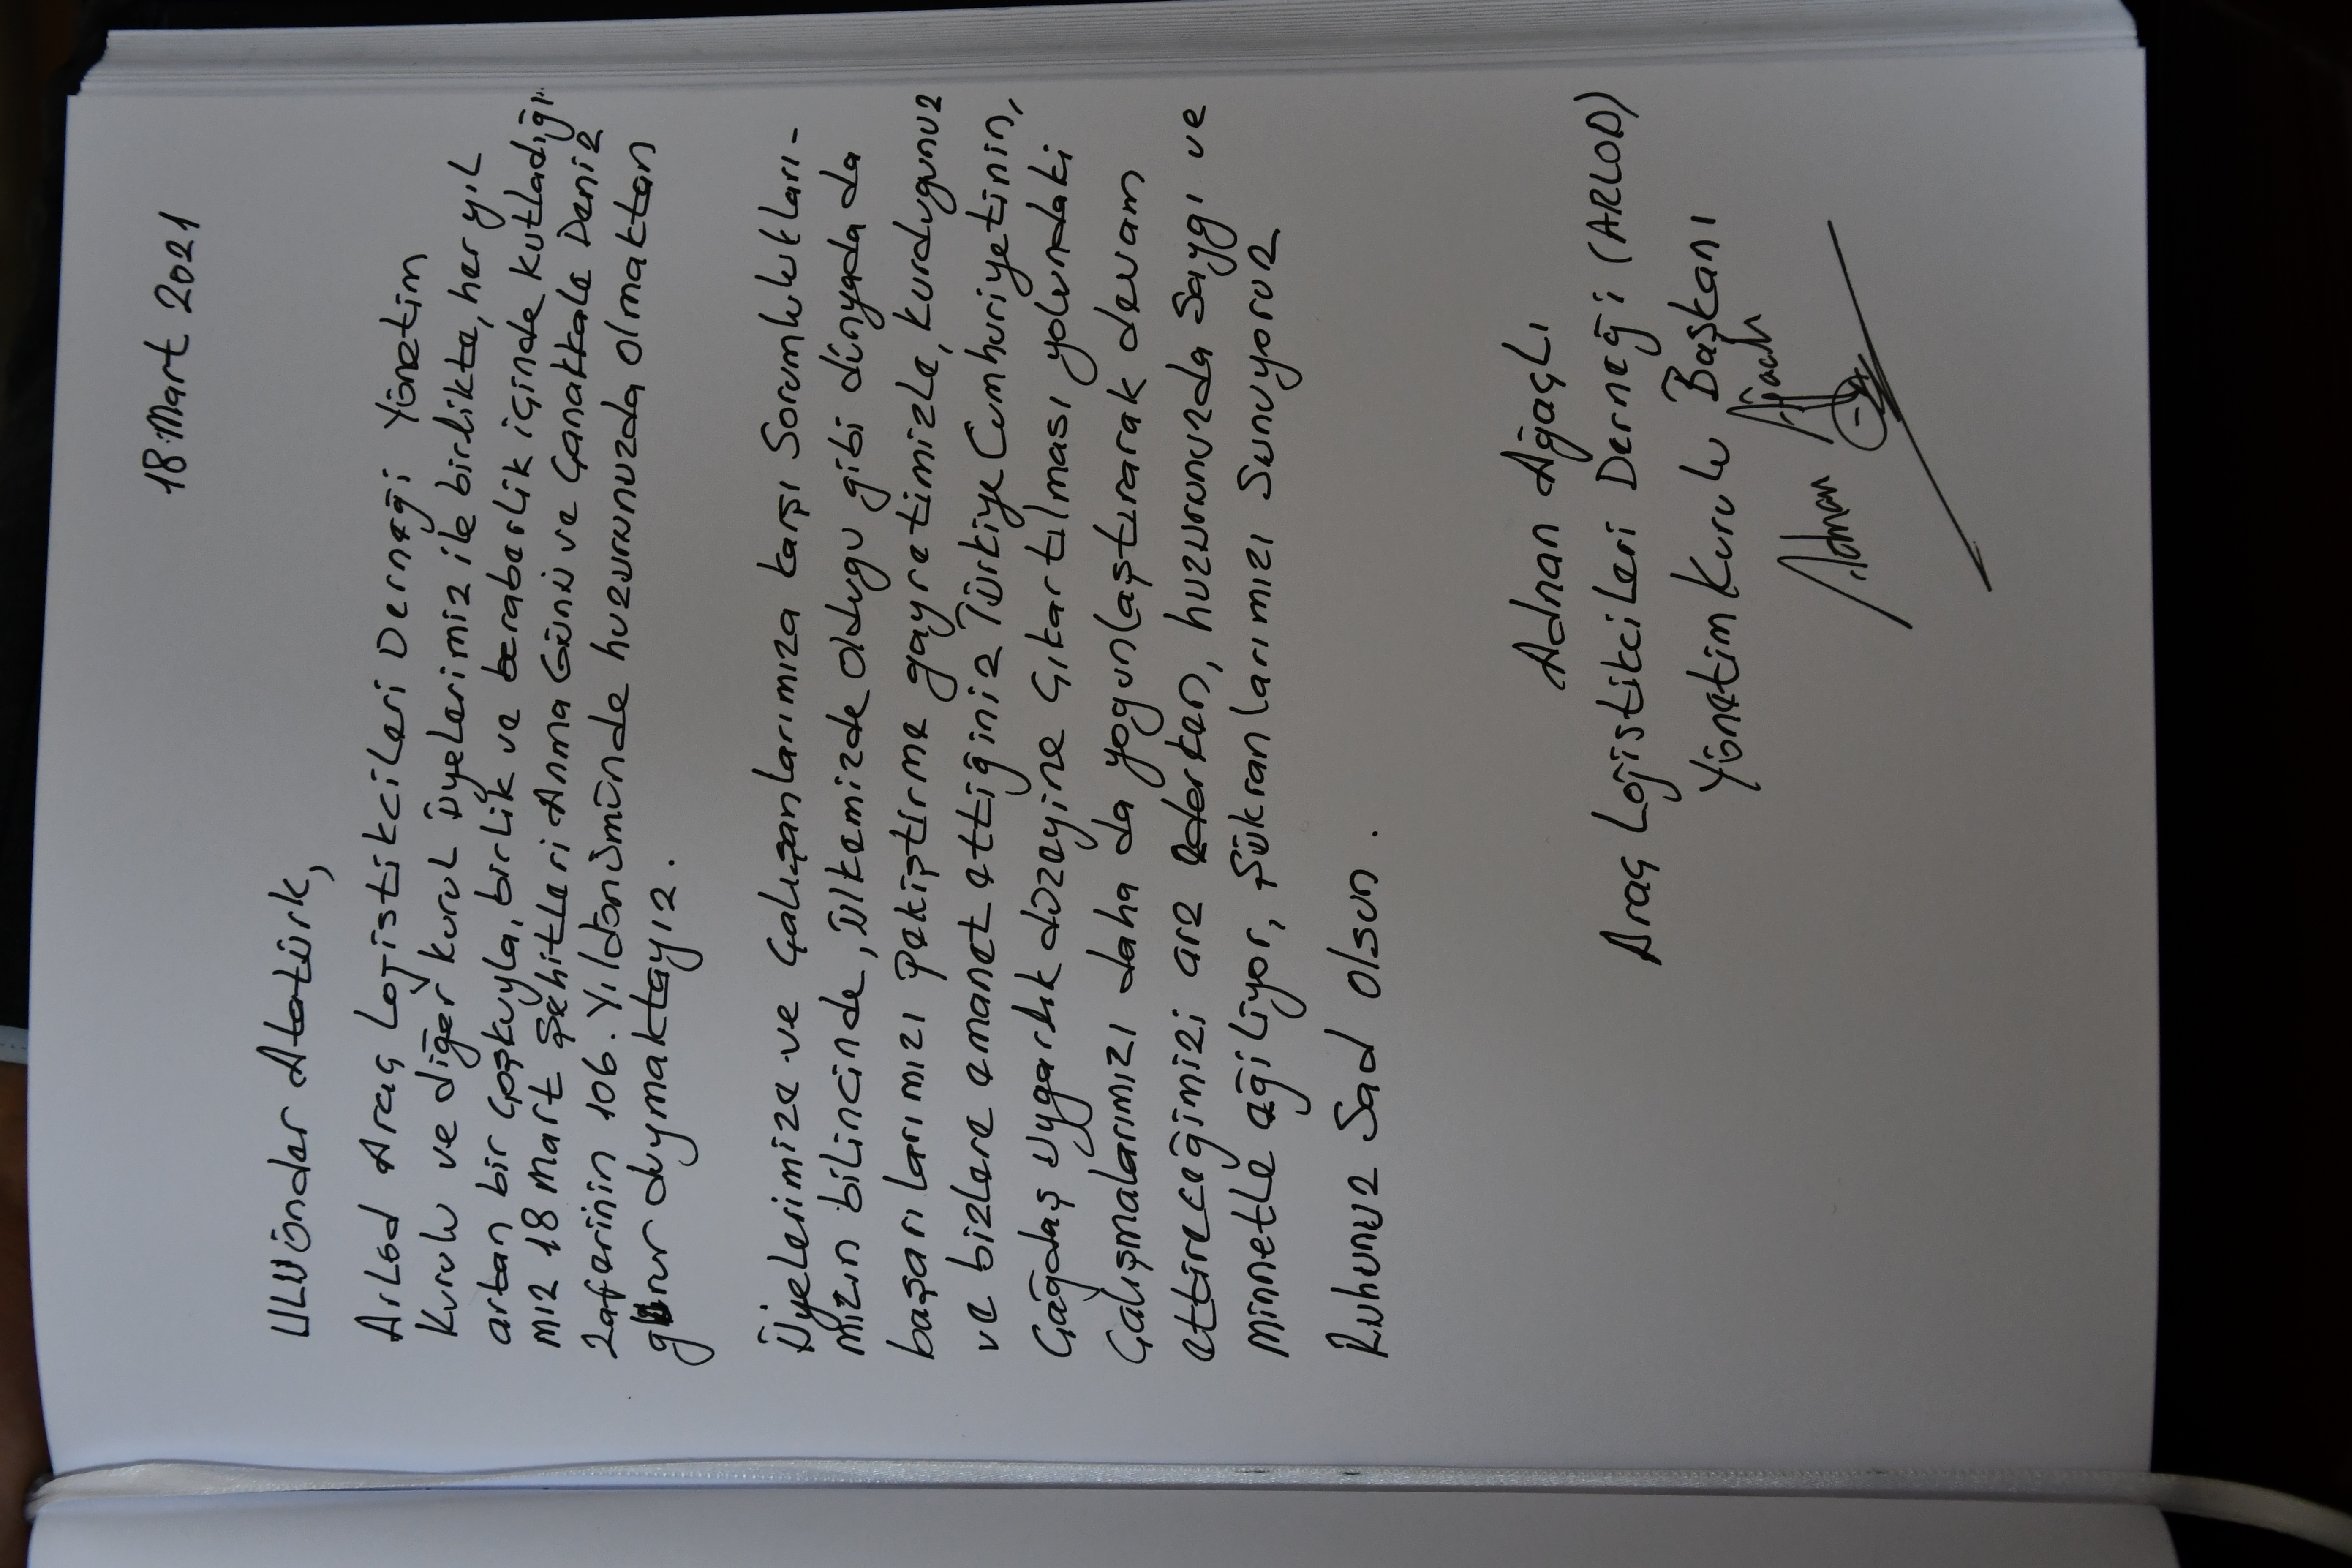 18 Mart 2021
Ulu önder Atatürk,
Arlod Araç Lojistikcileri Derneği Yönetim
Kurulu ve diğer kurul üyelerimiz ile birlikte, her yıl
artan bir coşkuyla, birlik ve beraberlik içinde kutladığı-
mız 18 Mart Şehitleri Anma Günü ve Çanakkale Deniz
Zaferinin 106. Yıldönümünde huzurunuzda olmaktan
gurur duymaktayız.
Üyelerimize ve Çalışanlarımıza karşı Sorumlulukları-
mızın bilincinde, ülkemizde olduğu gibi dünyada da
başarılarımızı pekiştirme gayretimizle, kurduğunuz
ve bizlere emanet ettiğiniz Türkiye Cumhuriyetinin,
Çağdaş uygarlık düzeyine Çıkartılması yolundaki
Çalışmalarımızı daha da yogunlaştırarak devam
ettireceğimizi arz ederken, huzurunuzda Saygı ve
minnetle eğiliyor, Şükranlarımızı Sunuyoruz
Ruhunuz Sad Olsun.
Adnan Ağaçlı
Araç Lojistikcileri Derneği (ARLOD)
Yönetim Kurulu Başkanı
Adnan